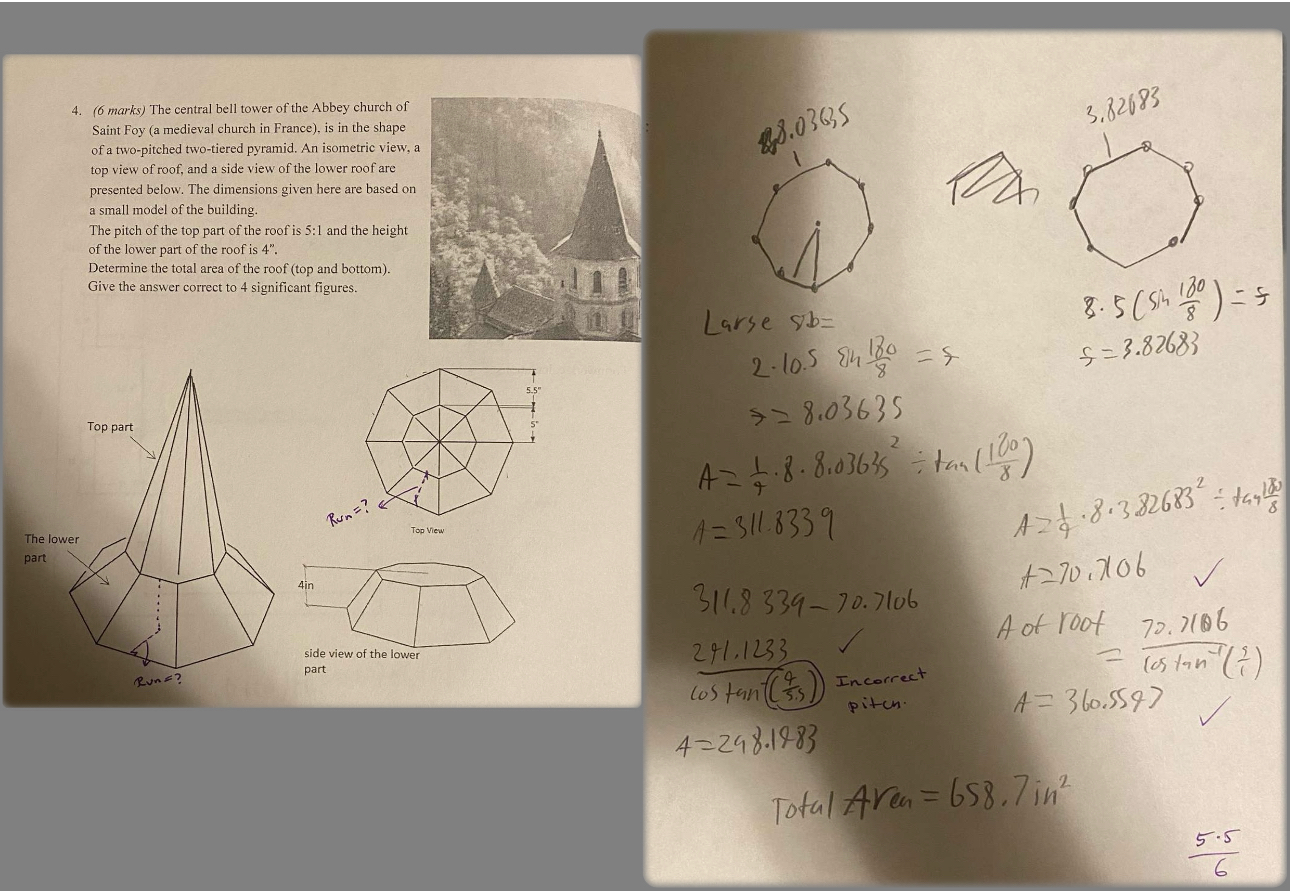 4. (6 marks) The central bell tower of the Abbey church of
Saint Foy (a medieval church in France), is in the shape
of a two-pitched two-tiered pyramid. An isometric view, a
top view of roof, and a side view of the lower roof are
presented below. The dimensions given here are based on
a small model of the building.
The pitch of the top part of the roof is 5:1 and the height
of the lower part of the roof is 4".
Determine the total area of the roof (top and bottom).
Give the answer correct to 4 significant figures.
Top part
The lower
part
Run=?
5.5"
5"
Run=?
Top View
4in
side view of the lower
part
8.03635
3.82683
Large
2·10.5 sin 180/8 = s
s = 8.03635
A = 1/4 · 8 · 8.03635² ÷ tan(180/8)
A = 311.8339
311.8339 - 70.7106
241.1233 ✓
cos tan⁻¹(4/5.5) Incorrect
pitch.
A = 248.1483
8·5(sin 180/8) = s
s = 3.82683
A = 1/4 · 8 · 3.82683² ÷ tan 180/8
A = 70.7106 ✓
A of roof = 70.7106 / cos tan⁻¹(5/1)
A = 360.5547 ✓
Total Area = 658.7 in²
5.5
6